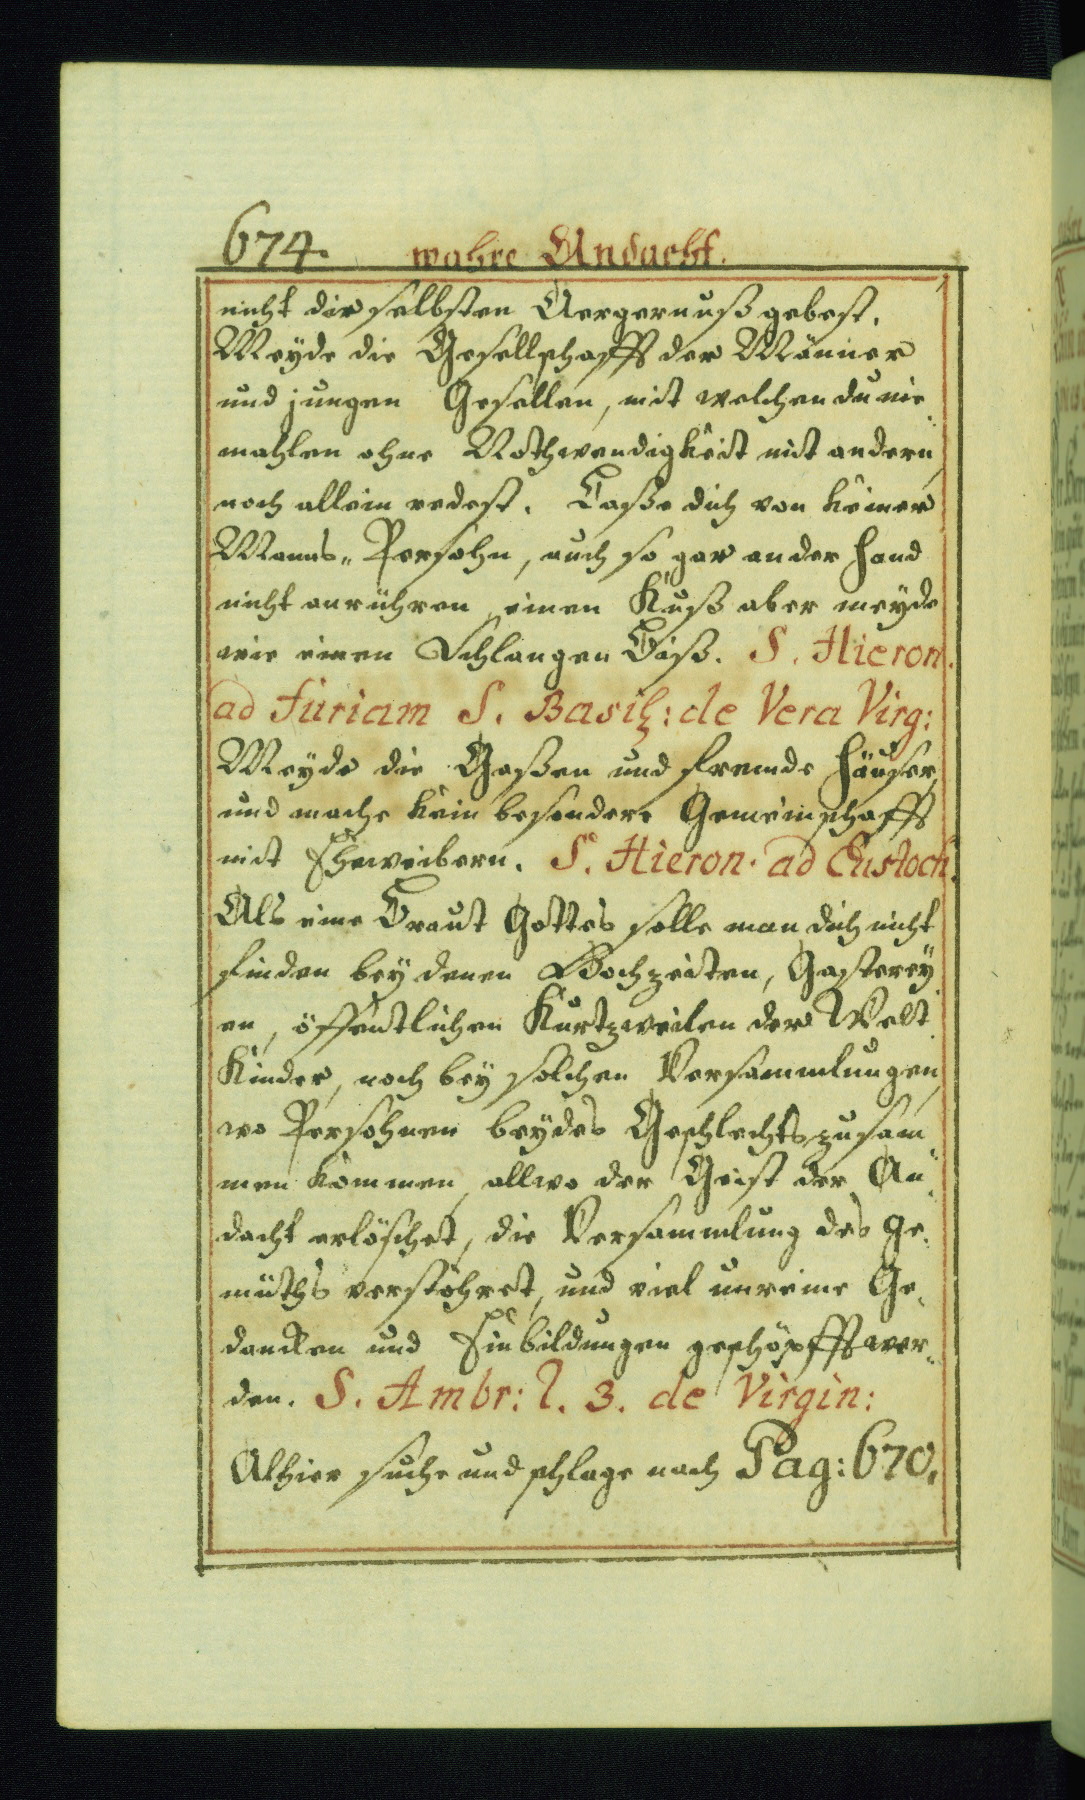 674. wahre Andacht.
nicht dir selbsten Aergernuß gebest.
Meyde die Gesellschafft der Männer
und jungen Gesellen, mit welchen du nie„
mahlen ohne Nothwendigkeit mit andern,
noch allein redest. Laße dich von keiner
Manns„ Persohn, auch so gar an der Hand
nicht anrühren, einen Kuß aber meyde
wie einen Schlangen Biß. S. Hieron.
ad furiam S. Basil: de Vera Virg:
Meyde die Gaßen und fremde Häuser,
und mache kein besondere Gemeinschafft
mit Eheweibern. S. Hieron. ad Eustoch.
Als eine Braut Gottes solle man dich nicht
finden bey denen Hochzeiten, Gasterey„
en, öffentlichen Kurtzweilen der Welt„
Kinder, noch bey solchen Versammlungen,
wo Persohnen beydes Geschlechts zusam„
men kommen, allwo der Geist der An„
dacht erlöschet, die Versammlung des Ge„
müths verstöhret, und viel unreine Ge„
dancken und Einbildungen geschöpfft wer„
den. S. Ambr: l. 3. de Virgin:
Alhier suche und schlage nach Pag: 670.